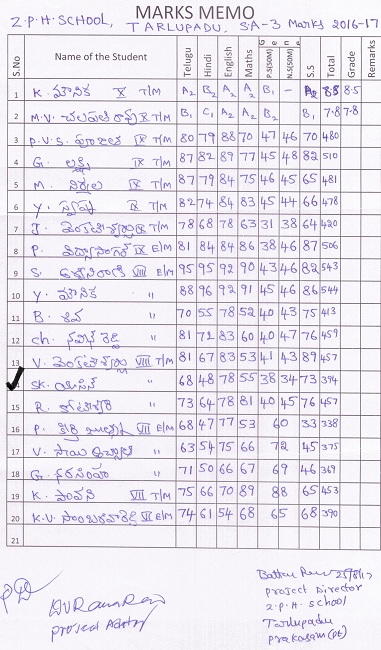 MARKS MEMO
Z.P.H. SCHOOL, TARLUPADU, SA-3 Marks 2016-17
S.No Name of the Student Telugu Hindi English Maths General P.S(50M) N.S(50M) S.S Total Grade Remarks
1 K. మౌనిక X T/M A2 B2 A2 A2 B1 - A2 8.8 8.5
2 M.V. X T/M B1 C1 A2 A2 B2 B1 7.8 7.8
3 P.V.S. IX T/M 80 79 88 70 47 46 70 480
4 G. లక్ష్మి IX T/M 87 82 89 77 45 48 82 510
5 M. నిర్మల IX T/M 87 79 84 75 46 45 65 481
6 Y. స్వప్న IX T/M 82 74 84 83 45 44 66 478
7 IX T/M 78 68 78 63 31 38 64 420
8 P. విద్యాసాగర్ IX E/M 81 84 84 86 38 46 87 506
9 S. VIII E/M 95 95 92 90 43 46 82 543
10 Y. మౌనిక " 88 96 92 91 45 46 86 544
11 B. శివ " 70 55 78 52 40 43 75 413
12 Ch. నవీన్ రెడ్డి " 81 72 83 60 40 47 76 459
13 V. వెంకటేశ్వర్లు VIII T/M 81 67 83 53 41 43 89 457
SK. యాసిన్ " 68 48 78 55 38 34 73 394
15 R. కోటేశ్వరి " 73 64 78 81 40 45 76 457
16 P. VII E/M 68 47 77 53 60 33 338
17 V. సాయి " 63 54 75 66 72 45 375
18 G. నరసింహా " 71 50 66 67 69 46 369
19 K. పావని VII T/M 75 66 70 89 88 65 453
20 K.V. VI E/M 74 61 54 68 65 68 390
21
PD
Project
25/8/17
Project Director
Z.P.H. School
Tarlupadu
Prakasam (Dt)